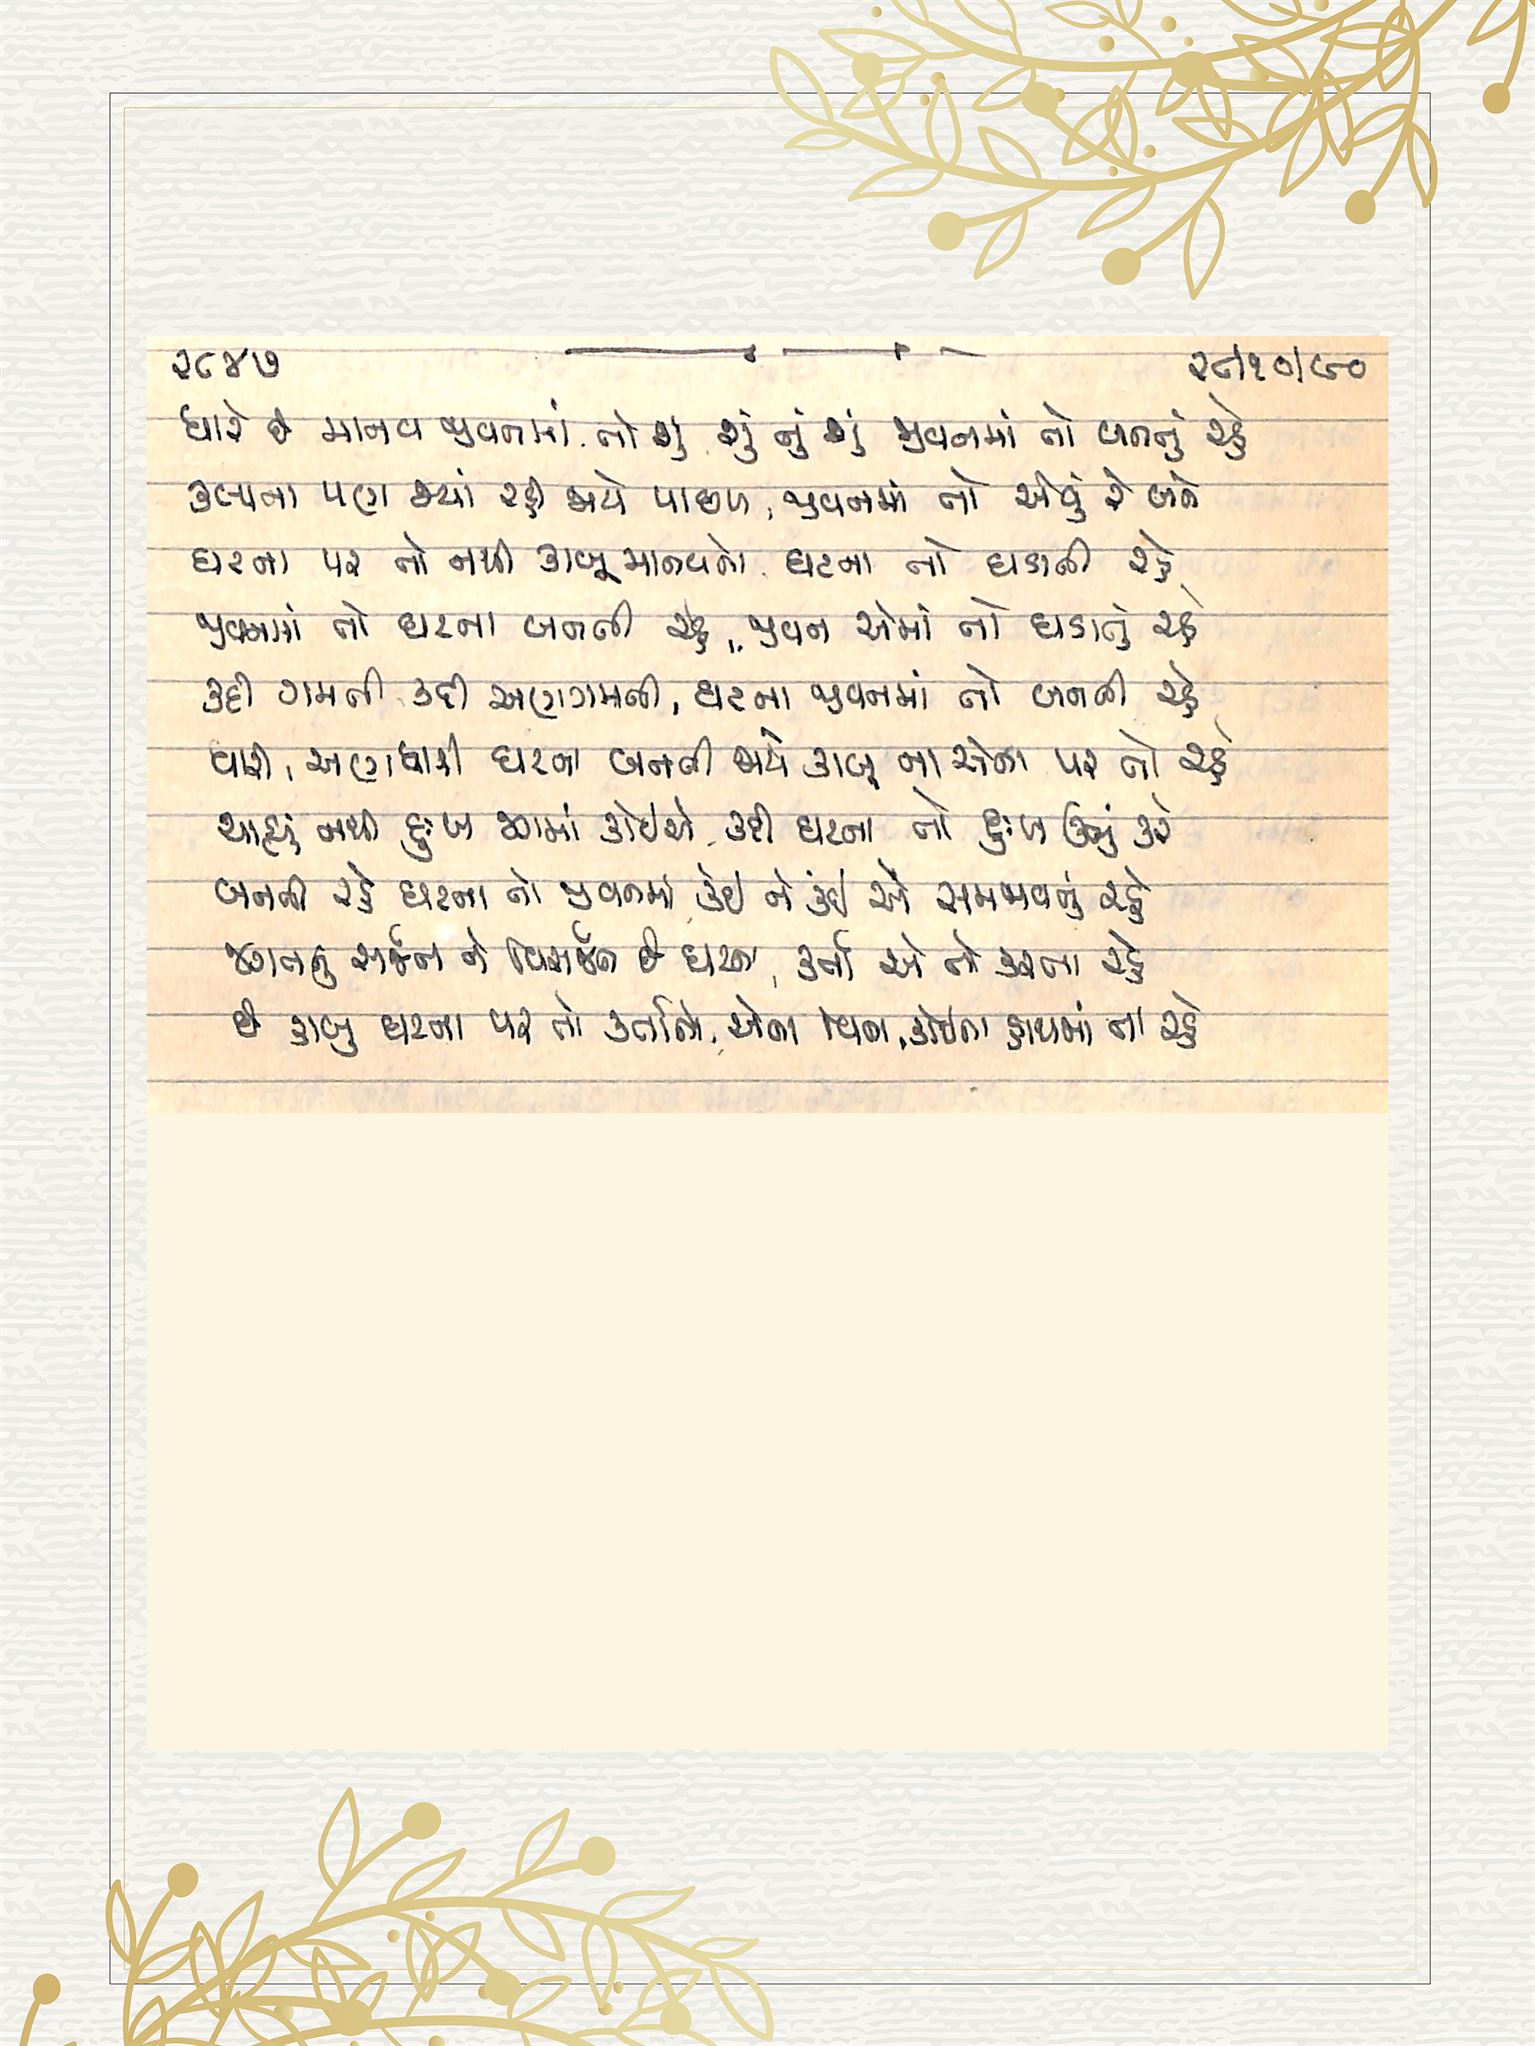 ૨૮૪૭ ૨૮/૧૦/૯૦
ધારે છે માનવ જીવનમાં તો શું, શું નું શું જીવનમાં તો બનતું રહે
કલ્પના પણ જ્યાં રહી જાયે પાછળ, જીવનમાં તો એવું રે બને
ઘટના પર તો નથી કાબૂ માનવનો, ઘટના તો ઘડાતી રહે
જીવનમાં તો ઘટના બનતી રહે, જીવન એમાં તો ઘડાતું રહે
કદી ગમતી કદી અણગમતી, ઘટના જીવનમાં તો બનતી રહે
ધારી, અણધારી ઘટના બનતી જાયે કાબૂ ના એના પર તો રહે
ચાહ્યું નથી દુઃખ જગમાં કોઈએ, કદી ઘટના તો દુઃખ ઊભું કરે
બનતી રહે ઘટના તો જીવનમાં, કંઈ ને કંઈ એ સમજાવતું રહે
જગતનું સર્જન ને વિસર્જન છે ઘટના, કર્તા એ તો કરતા રહે
છે કાબુ ઘટના પર તો કર્તાનો, એના વિના, કોઈના હાથમાં ના રહે